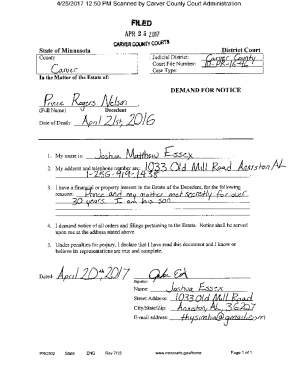 4/25/2017 12:50 PM Scanned by Carver County Court Administration
FILED
APR 25 2017
CARVER COUNTY COURTS
State of Minnesota
District Court
County
Carver
Judicial District: Carver County
Court File Number: 10-PR-16-46
Case Type:
In the Matter of the Estate of:
DEMAND FOR NOTICE
Prince Rogers Nelson
(Full Name) Decedent
Date of Death: April 21st, 2016
1. My name is: Joshua Matthew Essex
2. My address and telephone number are: 1033 Old Mill Road Anniston AL
1-256-919-1438
3. I have a financial or property interest in the Estate of the Decedent, for the following
reasons: Prince and my mother met secretly for over
30 years. I am his son
4. I demand notice of all orders and filings pertaining to the Estate. Notice shall be served
upon me at the address stated above.
5. Under penalties for perjury, I declare that I have read this document and I know or
believe its representations are true and complete.
Dated: April 20th 2017
Signature
Name: Joshua Essex
Street Address: 1033 Old Mill Road
City/State/Zip: Anniston, AL 36207
E-mail address: @gmail.com
State ENG Rev 7/15 www.mncourts.gov/forms Page 1 of 1